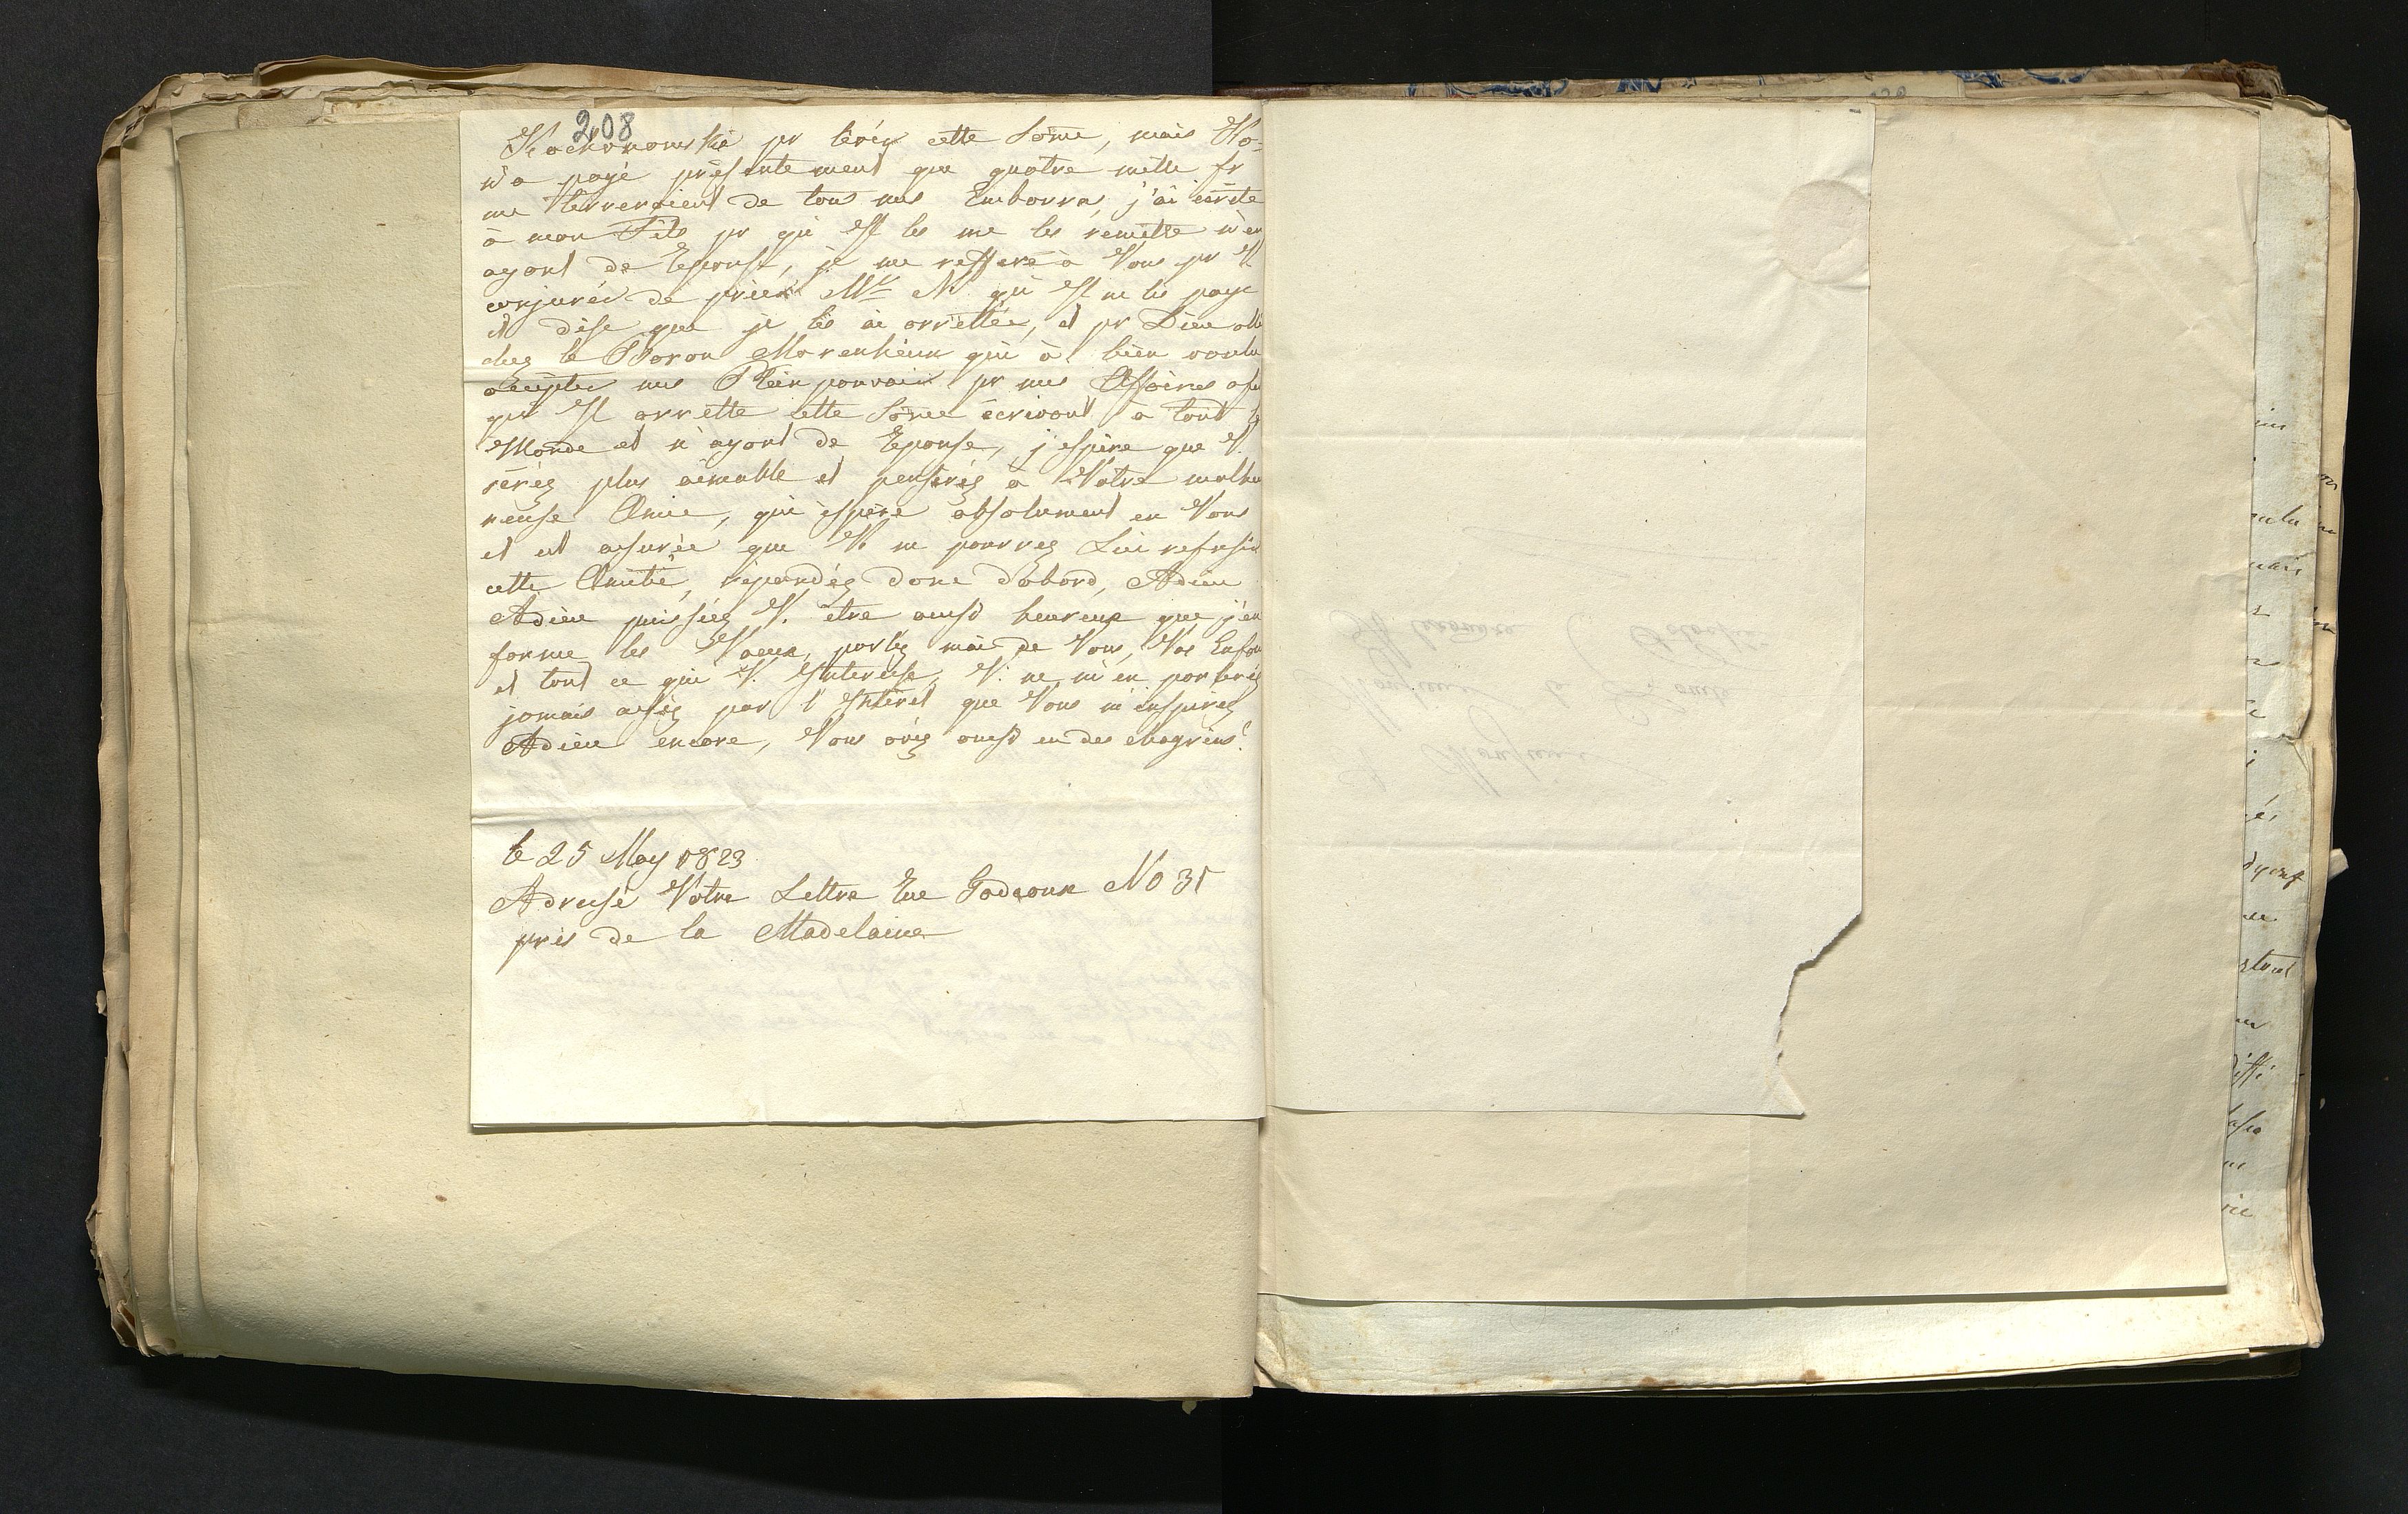 208
Kochonowskie pr tirér cette Some, mais Ko=
n'a payé présentement que quatre mille fr
me tirreroient de tous mes Emborra, j'ai ecrite
à mon Fils pr qu'il les me les remette n'en
ayont de Reponse, je me reffere à Vous pr V.
conjurér de prier Mr N. qu'il ne les paye
et dise que je les ai arrettée, et pr Dieu allé
chez le Boron Morenheim qui à bien voulu
accepter mes Plein pouvoir pr mes Affaires afin
qu'il arrette cette Some écrivont à tout le
Monde et n'ayont de Reponse, j'espère que V.
seréz plus aimable et penseréz à Votre malheu
reuse Amie, qui espère absolument en Vous
et est assurée que V. ne pourrez Lui refuser
cette Amitié, répondéz donc d'abord, Adieu
Adieu puissiéz V. etre aussi heureux que j'en
forme les Voeux, parlez moi de Vous, Vos Enfan
et tout ce qui V. Interesse, V. ne m'en parleréz
jamais assez par l'Intéret que Vous m'inspirez
Adieu encore, Vous avéz aussi eu des chagrins!
le 25 May 1823
Adressé Votre Lettre Rue Godeoux No 31
près de la Madelaine